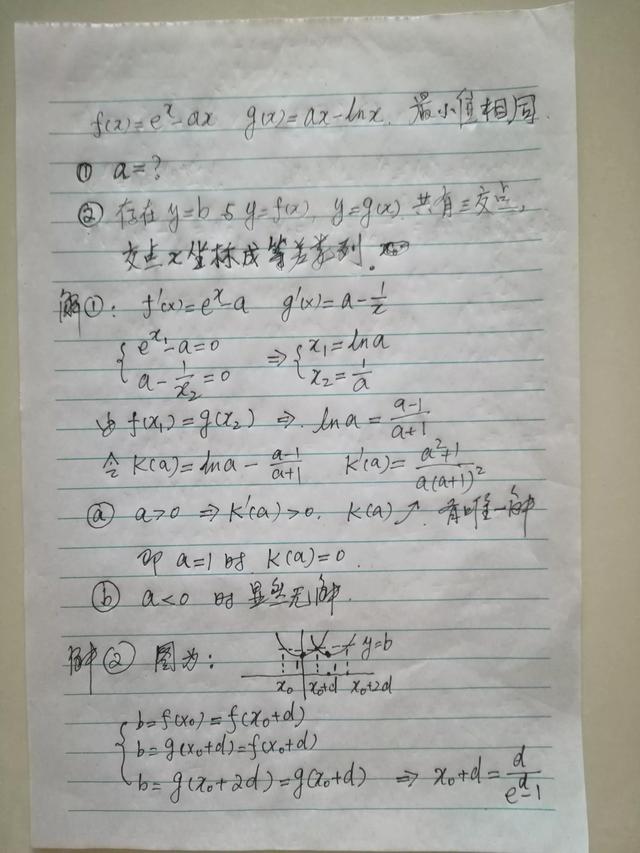 f(x)=eˣ-ax g(x)=ax-lnx. 最小值相同.
① a=?
② 存在 y=b 与 y=f(x), y=g(x) 共有三交点,
交点x坐标成等差数列.
解①: f'(x)=eˣ-a g'(x)=a-1/x
{e^x₁-a=0 ⇒ {x₁=lna
a-1/x₂=0 x₂=1/a
由 f(x₁)=g(x₂) ⇒ lna=(a-1)/(a+1)
令 K(a)=lna-(a-1)/(a+1) K'(a)=(a²+1)/(a(a+1)²)
ⓐ a>0 ⇒ K'(a)>0. K(a)↗. 有唯一解
即 a=1 时 K(a)=0.
ⓑ a<0 时 显然无解.
解② 图为:
y=b
x₀ x₀+d x₀+2d
{b=f(x₀)=f(x₀+d)
b=g(x₀+d)=f(x₀+d)
b=g(x₀+2d)=g(x₀+d) ⇒ x₀+d=d/(e^d-1)